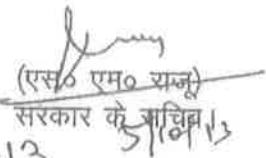 (एस० एम० राजू)
सरकार के सचिव।
5/10/13
13